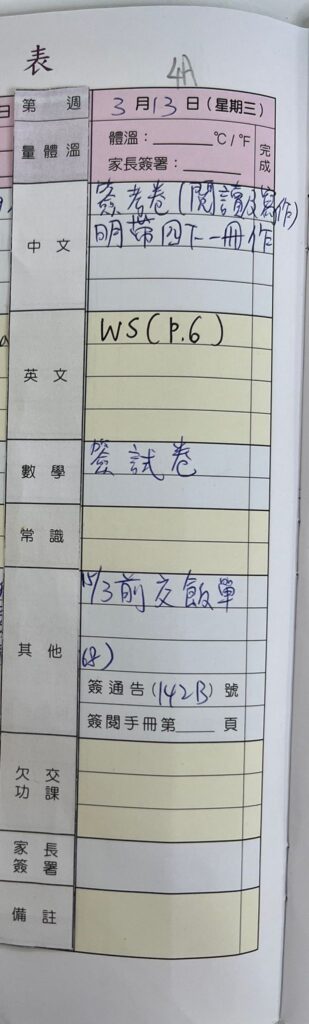 表
4A
第 週
3月13日(星期三)
量體溫
體溫：______℃/℉
家長簽署：______
完成
中文
簽考卷(閱讀及寫作)
明帶四下一冊作
英文
WS(p.6)
數學
簽試卷
常識
其他
15/3前交飯單
68)
簽通告(142B)號
簽閱手冊第____頁
欠交
功課
家長
簽署
備註